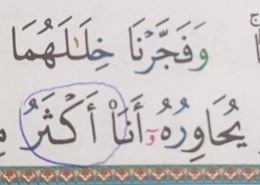 وَفَجَّرْنَا خِلَـٰلَهُمَا
يُحَاوِرُهُۥٓ أَنَا۠ أَكْثَرُ